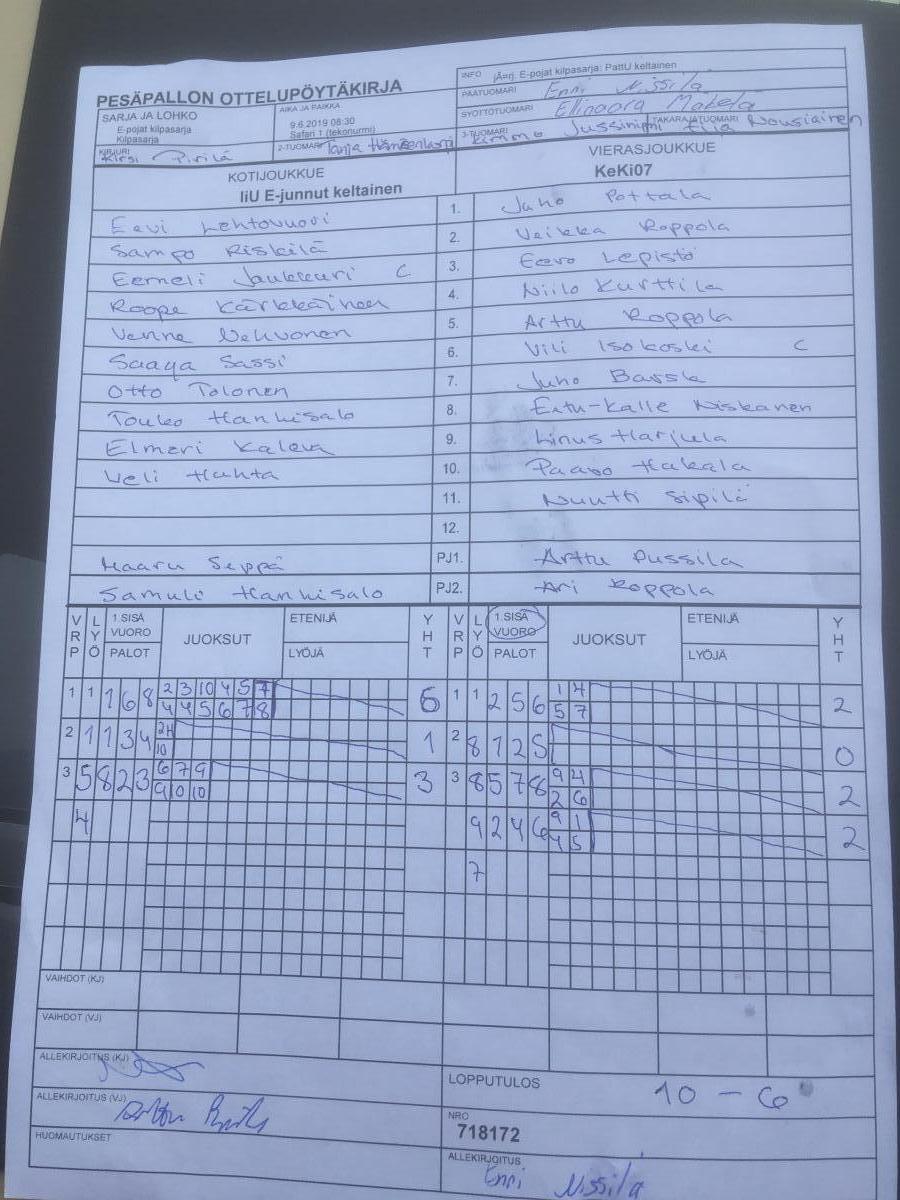 PESÄPALLON OTTELUPÖYTÄKIRJA
INFO jÄ¤rj. E-pojat kilpasarja: PattU keltainen
PÄÄTUOMARI Enni Nissilä
SYÖTTÖTUOMARI Ellinoora Mäkelä
SARJA JA LOHKO
E-pojat kilpasarja
Kilpasarja
AIKA JA PAIKKA
9.6.2019 08:30
Safari 1 (tekonurmi)
3-TUOMARI Kimmo TAKARAJATUOMARI Nousiainen
KIRJURI Kirsi Pirilä
2-TUOMARI Tanja
KOTIJOUKKUE
IiU E-junnut keltainen
VIERASJOUKKUE
KeKi07
Eevi Lehtovuori 1. Juho Pottala
Sampo Riskilä 2. Veikka Roppola
Eemeli Jaukkuri C 3. Eero Lepistö
Roope Kärkkäinen 4. Niilo Kurttila
Venne Vehvonen 5. Arttu Roppola
Saaga Sassi 6. Vili Isokoski C
Otto Tolonen 7. Juho
Touko Hanhisalo 8. Eetu-Kalle Niskanen
Elmeri Kaleva 9. Linus Harjula
Veli Huhta 10. Paavo Hakala
11. Nuutti Sipilä
12.
Maaru Seppä PJ1. Arttu Pussila
Samuli Hanhisalo PJ2. Ari Roppola
VRP LYÖ 1.SISÄ VUORO PALOT JUOKSUT ETENIJÄ LYÖJÄ YHT VRP LYÖ 1.SISÄ VUORO PALOT JUOKSUT ETENIJÄ LYÖJÄ YHT
1 1 1 6 8 2 3 10 4 5 7 6 1 1 2 5 6 1 4 2
4 4 5 6 7 8 5 7
2 1 1 3 4 1 2 8 1 2 5 0
10
3 5 8 2 3 6 7 9 3 3 8 5 7 8 9 4 2
9 10 10 2 6
4 9 2 4 6 9 1 2
4 5
7
VAIHDOT (KJ)
VAIHDOT (VJ)
ALLEKIRJOITUS (KJ)
ALLEKIRJOITUS (VJ)
HUOMAUTUKSET
LOPPUTULOS 10 - 6
NRO
718172
ALLEKIRJOITUS
Enni Nissilä